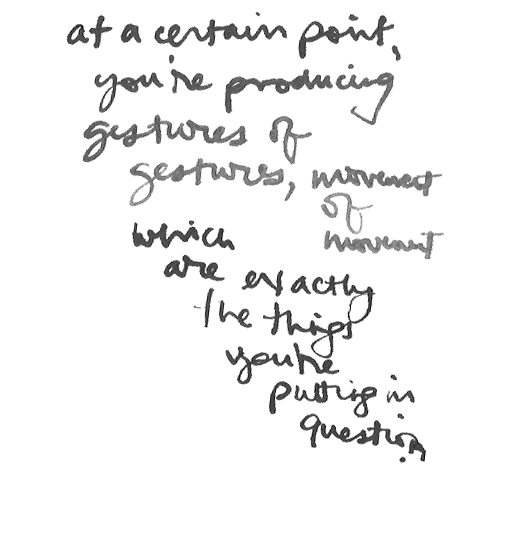 at a certain point,
you're producing
gestures of
gestures, movement
of
which movement
are exactly
the things
you're
putting in
question.